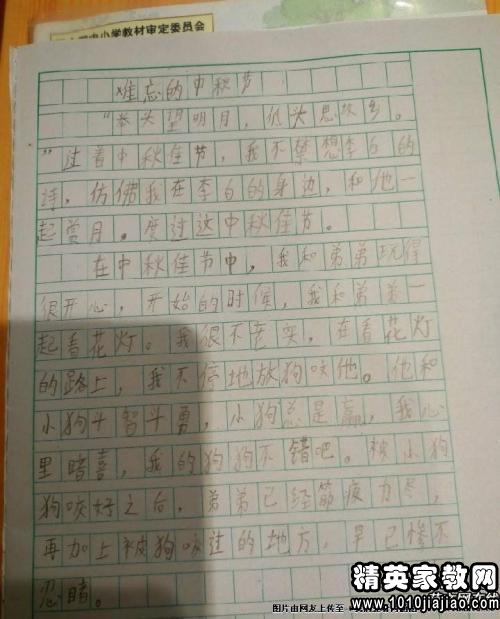 中小学教材审定委员会
难忘的中秋节
“举头望明月，低头思故乡。
”过着中秋佳节，我不禁想李白的
诗，仿佛我在李白的身边，和他一
起赏月。度过这中秋佳节。
在中秋佳节中，我和弟弟玩得
很开心，开始的时候，我和弟弟一
起看花灯。我很不老实，在看花灯
的路上，我不停地放狗咬他。他和
小狗斗智斗勇，小狗总是赢，我心
里暗喜，我的狗狗不错吧。被小狗
狗咬好之后，弟弟已经筋疲力尽，
再加上被狗咬过的地方，早已惨不
忍睹。
精英家教网
图片由网友上传至
www.1010jiajiao.com